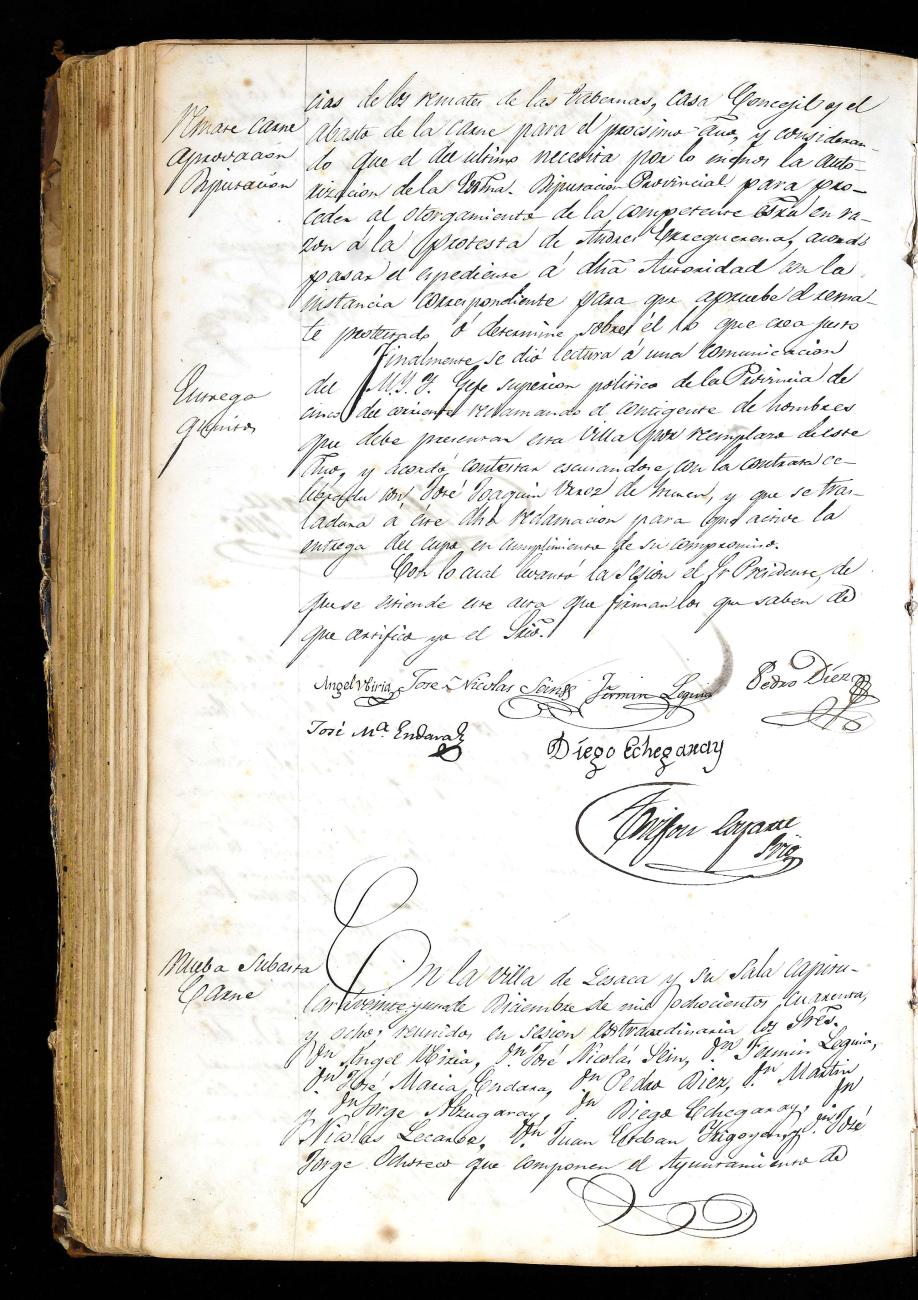 Remate Carne
Aprovacion
Diputacion
cias de los remates de las tabernas, casa Concejil y el
abasto de la carne para el procsimo Año, y consideran-
do que el del ultimo necesita por lo menos la auto-
rizacion de la Exma. Diputacion Provincial para pro-
ceder al otorgamiento de la competente Esra en ra-
zon á la protesta de Andres acordó
pasar el espediente á dha Autoridad con la
instancia correspondiente para que apruebe el rema-
te protestado ó determine sobre él lo que crea justo
Entrega
quintos
Finalmente se dió lectura á una comunicacion
del M.Y.S. Gefe superior politico de la Provincia de
cinco del corriente reclamando el contigente de hombres
que debe presentar esta Villa por reemplazo de este
Año, y acordó contestar escusandose con la contrata ce-
lebrada con José Joaquin de y que se tras-
ladara á este dha reclamacion para que active la
entrega del cupo en cumplimiento de su compromiso.
Con lo cual levantó la Sesion el Sr Presidente, de
que se estiende este acta que firman los que saben de
que certifico yo el Srio.
Angel Yriria José Nicolas Seing Fermin Legina Pedro Díez
José Mª Endara Diego Echegaray
Loyarte
Srio
Nueba Subasta
Carne
En la Villa de Lesaca y su Sala Capitu-
lar á veinte y uno de Diciembre de mil ochocientos cuarenta
y ocho: reunidos en sesion estraordinaria los Sres.
Dn Angel Yriria, Dn José Nicolás Sein, Dn Fermin Legina,
Dn José Maria Endara, Dn Pedro Diez, Dn Martin
y Dn Jorge Alzugaray, Dn Diego Echegaray, Dn
Nicolas Lecaroz, Dn Juan Esteban Yrigoyen y Dn José
Jorge Ochoteco que componen el Ayuntamiento de